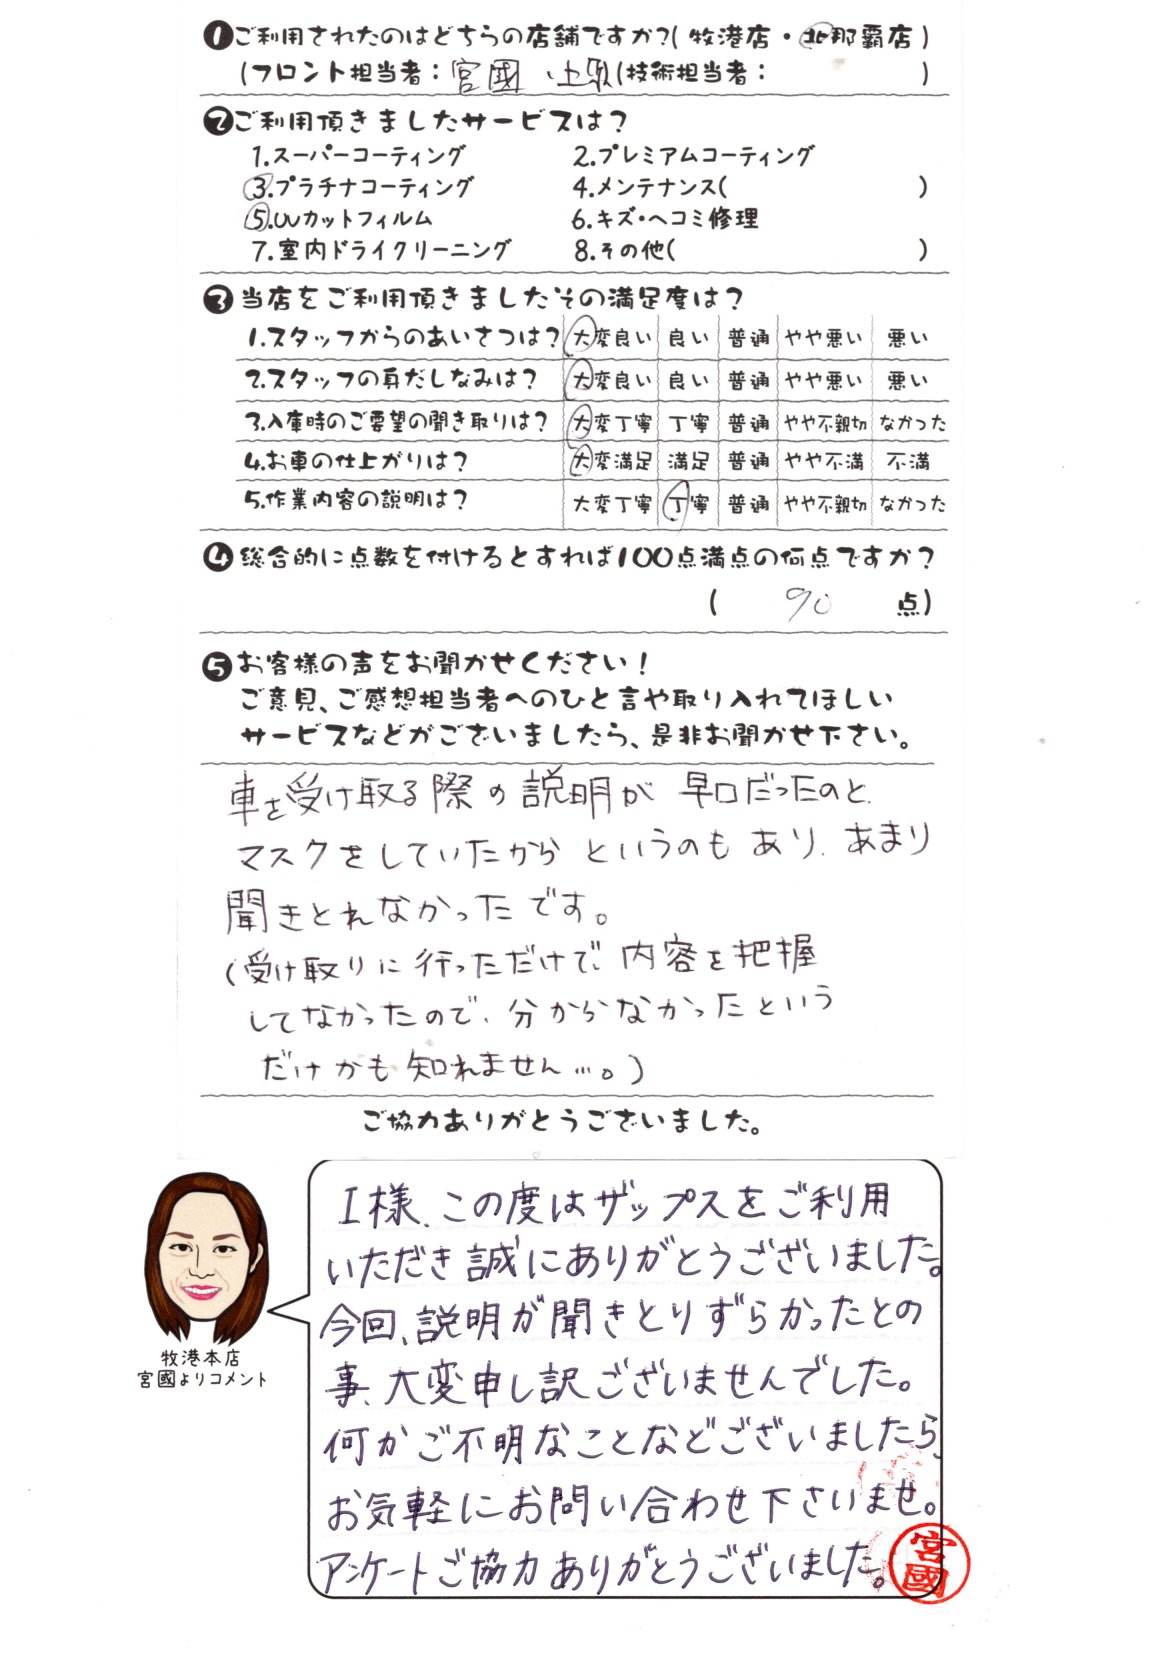 ❶ご利用されたのはどちらの店舗ですか?( 牧港店・北那覇店 )
(フロント担当者: 宮國 (技術担当者: )
❷ご利用頂きましたサービスは?
1.スーパーコーティング 2.プレミアムコーティング
3.プラチナコーティング 4.メンテナンス( )
5.UVカットフィルム 6.キズ・ヘコミ修理
7.室内ドライクリーニング 8.その他( )
❸当店をご利用頂きましたその満足度は?
1.スタッフからのあいさつは? 大変良い 良い 普通 やや悪い 悪い
2.スタッフの身だしなみは? 大変良い 良い 普通 やや悪い 悪い
3.入庫時のご要望の聞き取りは? 大変丁寧 丁寧 普通 やや不親切 なかった
4.お車の仕上がりは? 大変満足 満足 普通 やや不満 不満
5.作業内容の説明は? 大変丁寧 丁寧 普通 やや不親切 なかった
❹総合的に点数を付けるとすれば100点満点の何点ですか?
( 90 点)
❺お客様の声をお聞かせください!
ご意見、ご感想担当者へのひと言や取り入れてほしい
サービスなどがございましたら、是非お聞かせ下さい。
車を受け取る際の説明が 早口だったのと、
マスクをしていたから というのも あり、あまり
聞きとれなかったです。
(受け取りに行っただけで、内容を把握
してなかったので、分からなかったという
だけかも知れません…。)
ご協力ありがとうございました。
I様、この度はザップスをご利用
いただき誠にありがとうございました。
今回、説明が聞きとりずらかったとの
事、大変申し訳ございませんでした。
何かご不明なことなどございましたら、
お気軽にお問い合わせ下さいませ。
アンケートご協力ありがとうございました。
牧港本店
宮國よりコメント
宮國